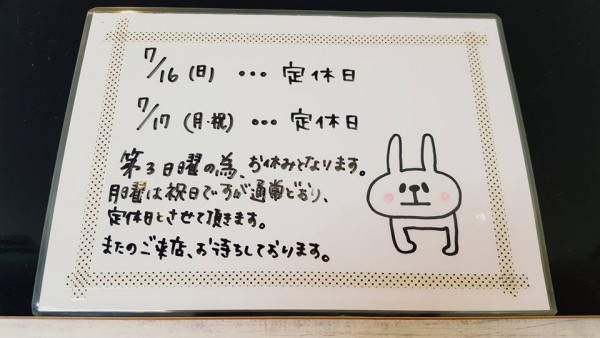 7/16(日)…定休日
7/17(月・祝)…定休日
第3日曜の為、お休みとなります。
月曜は祝日ですが通常どおり、
定休日とさせて頂きます。
またのご来店、お待ちしております。